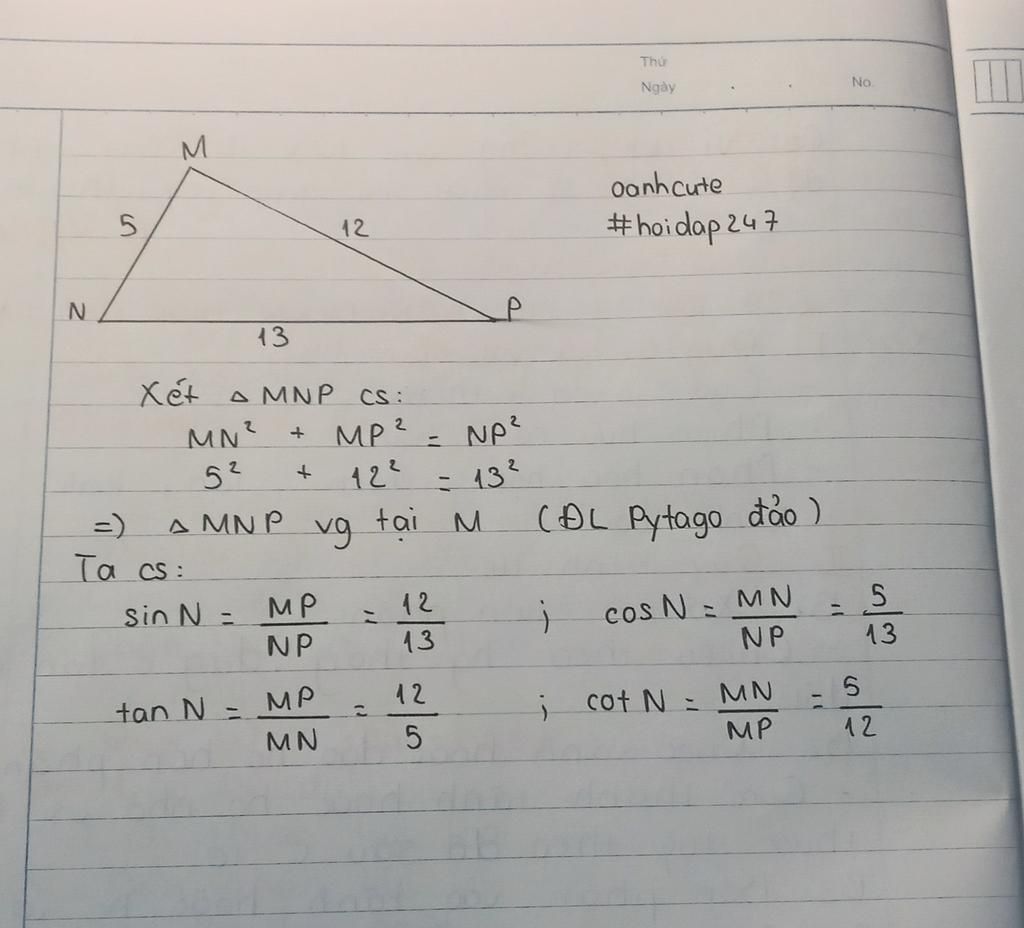 Thứ
Ngày . . No.
M
oanhcute
#hoidap247
5
12
N
P
13
Xét △ MNP cs:
MN² + MP² = NP²
5² + 12² = 13²
=) △ MNP vg tại M (ĐL Pytago đảo)
Ta cs:
sin N = MP/NP = 12/13 ; cos N = MN/NP = 5/13
tan N = MP/MN = 12/5 ; cot N = MN/MP = 5/12